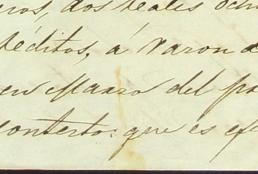 ros, dos reales och
réditos, á razon d
en Marzo del po
contento: que es ef